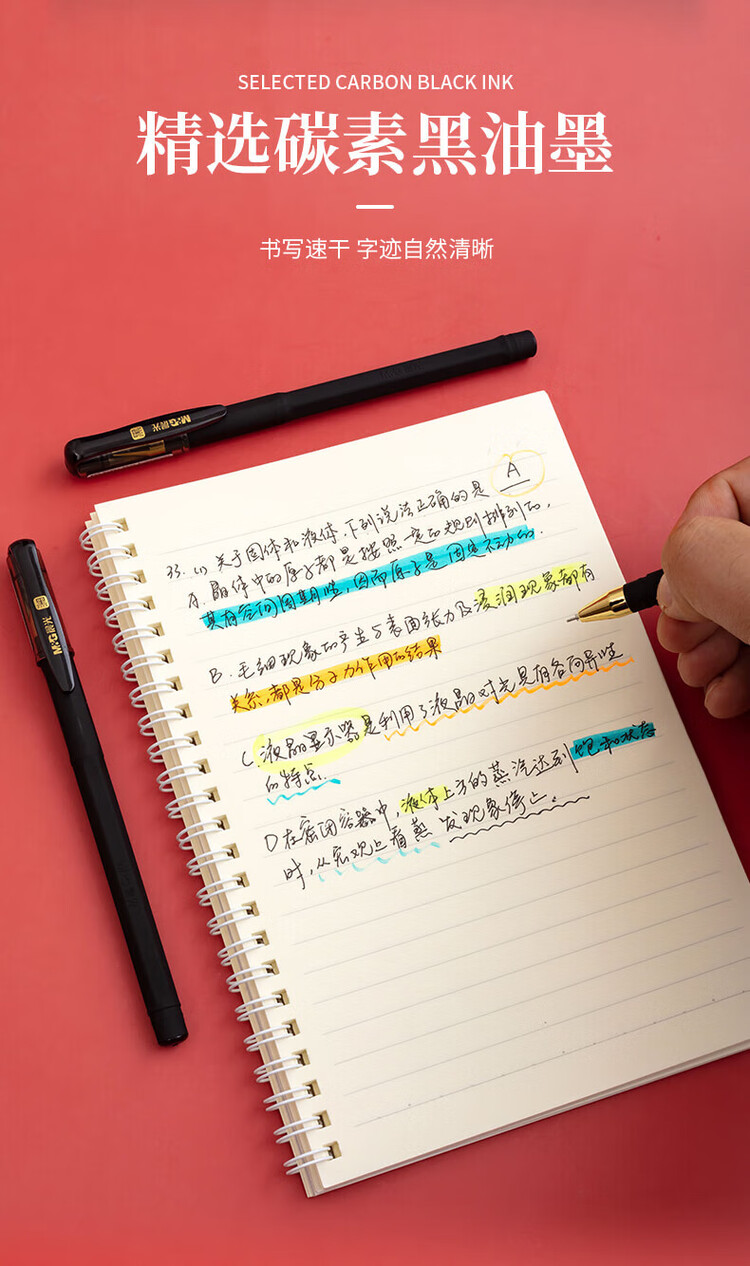 SELECTED CARBON BLACK INK
精选碳素黑油墨
书写速干 字迹自然清晰
M&G晨光
M&G晨光
A
33. (1) 关于固体和液体,下列说法正确的是
A. 晶体中的原子都是按照一定的规则排列的,
其有各向同期性,因而原子是固定不动的.
B. 毛细现象的产生与表面张力及浸润现象都有
关系,都是分子力作用的结果
C 液晶显示器是利用了液晶对光具有各向异性
的特点.
D 在密闭容器中,液体上方的蒸汽达到饱和状态
时,从宏观上看蒸发现象停止.